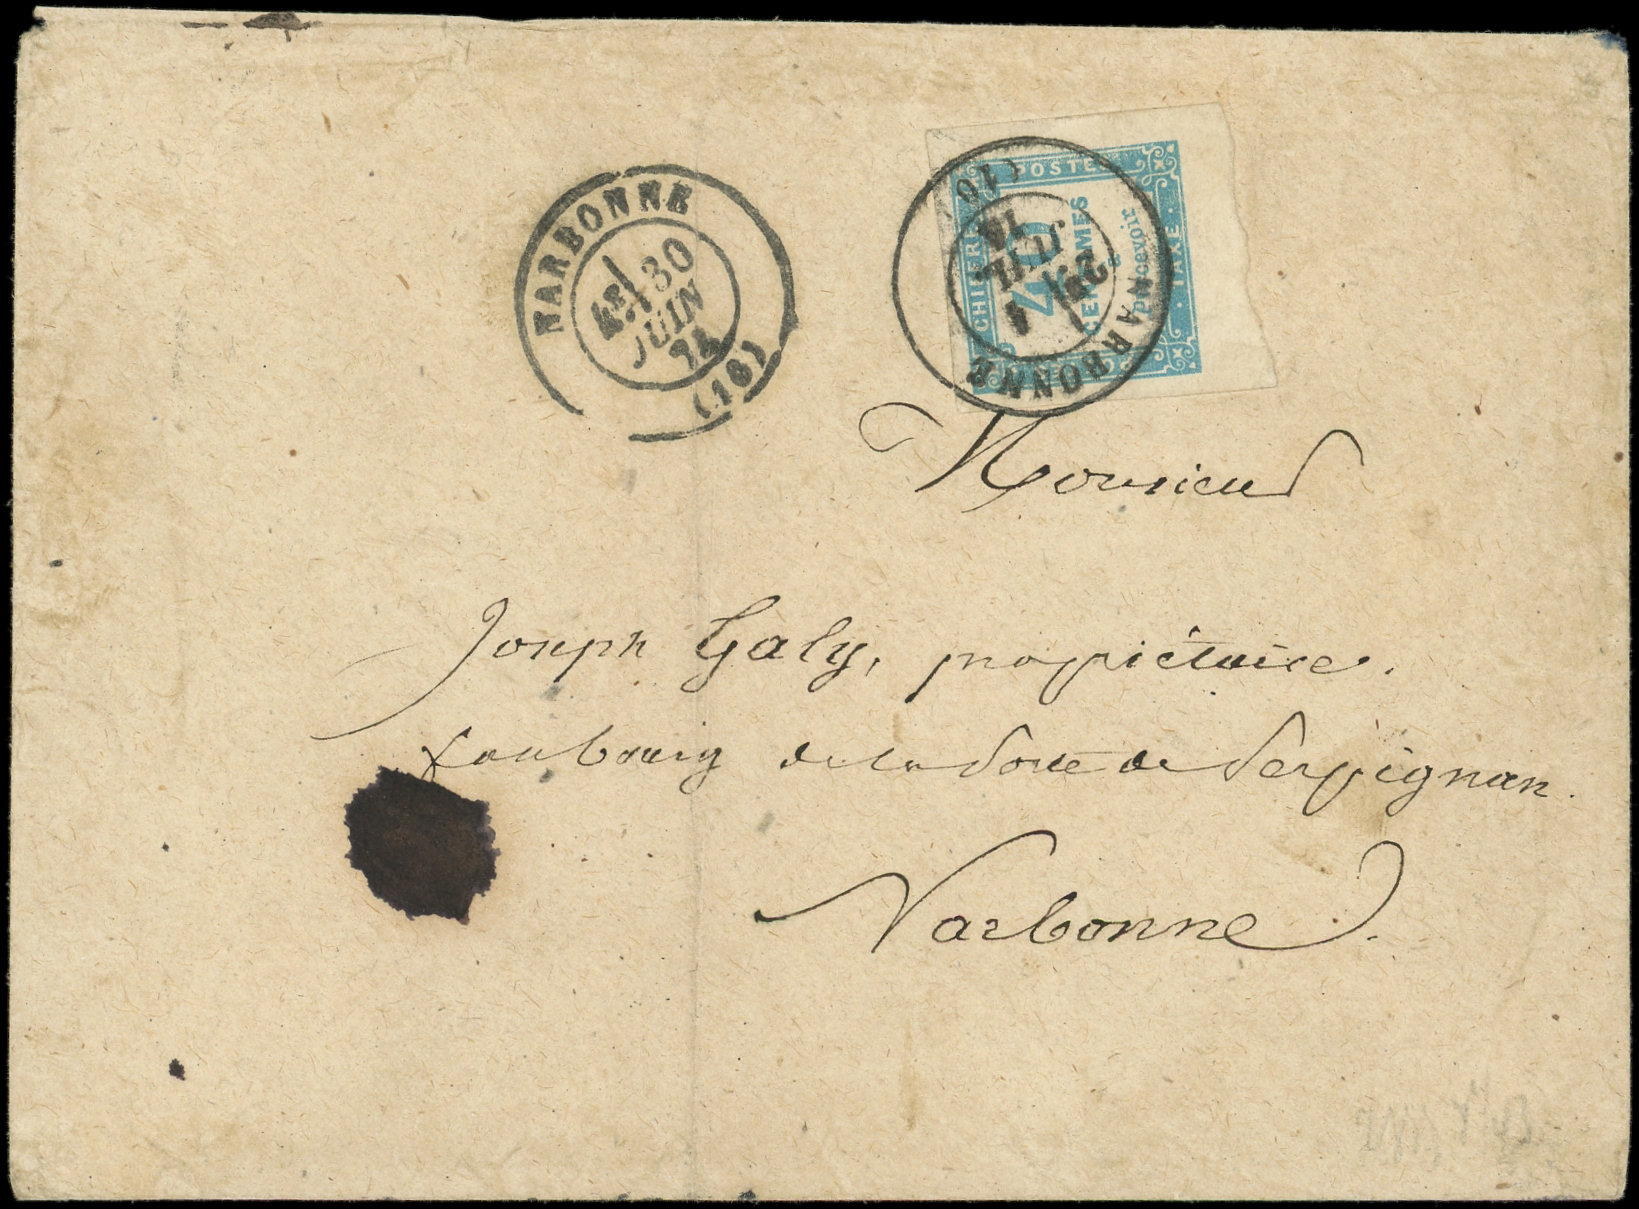 NARBONNE
30
JUIN
74
(16)
POSTES
CHIFFRE
40
CENTIMES
à percevoir
TAXE
NARBONNE
JUIL
(16)
Monsieur
Joseph Galy, propriétaire.
faubourg de la Porte de Perpignan.
Narbonne.